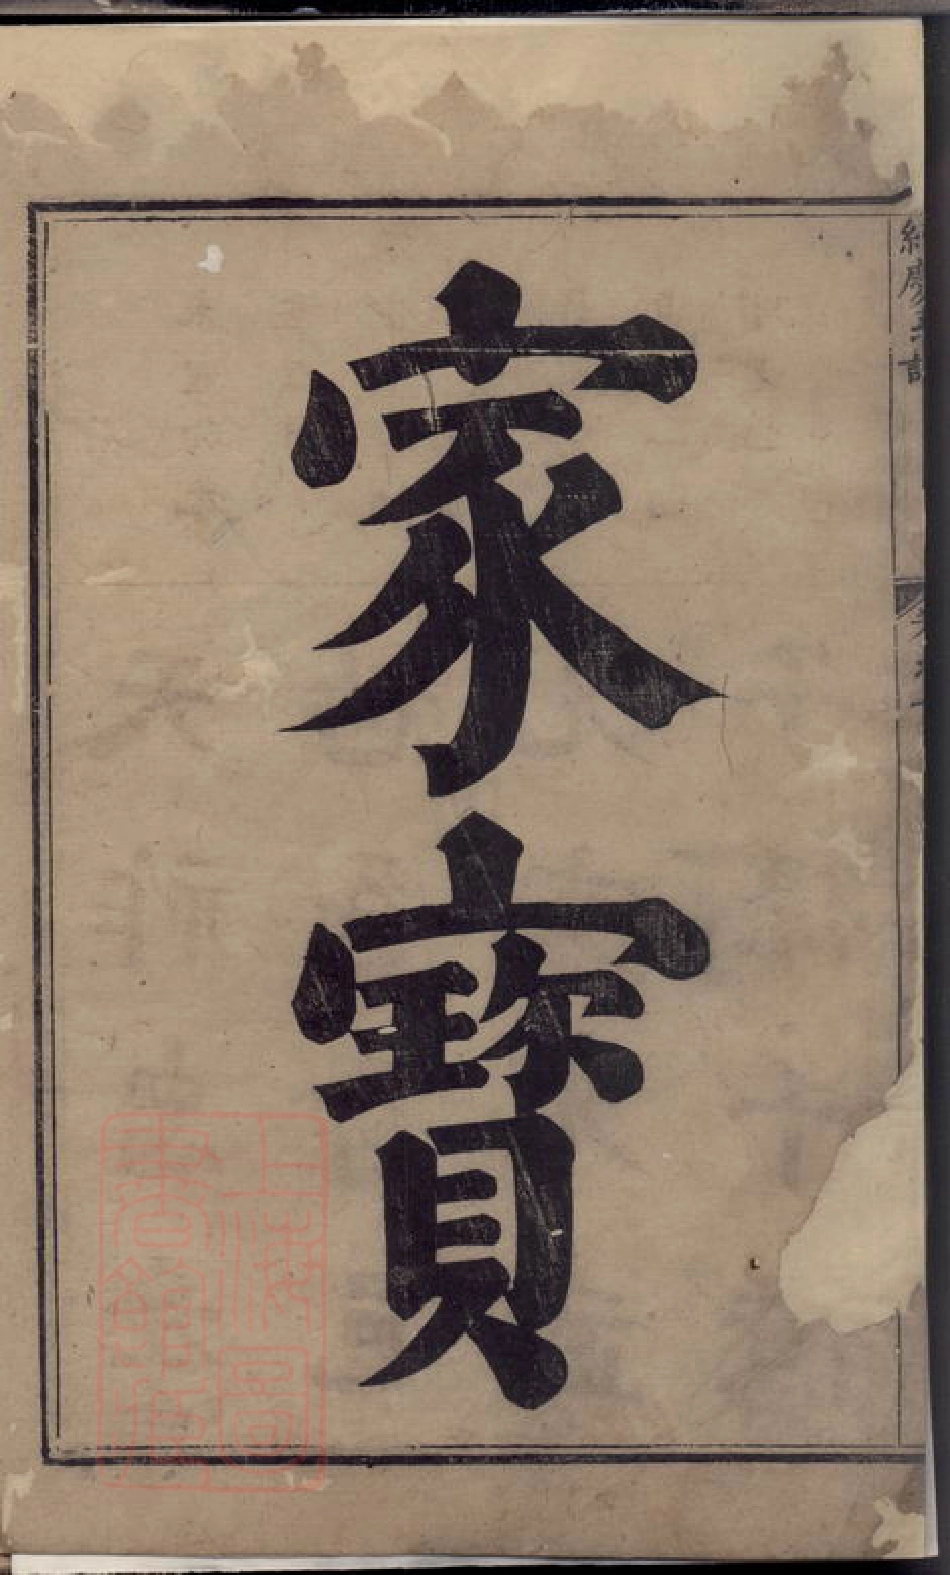 家
寶
上海圖書館藏